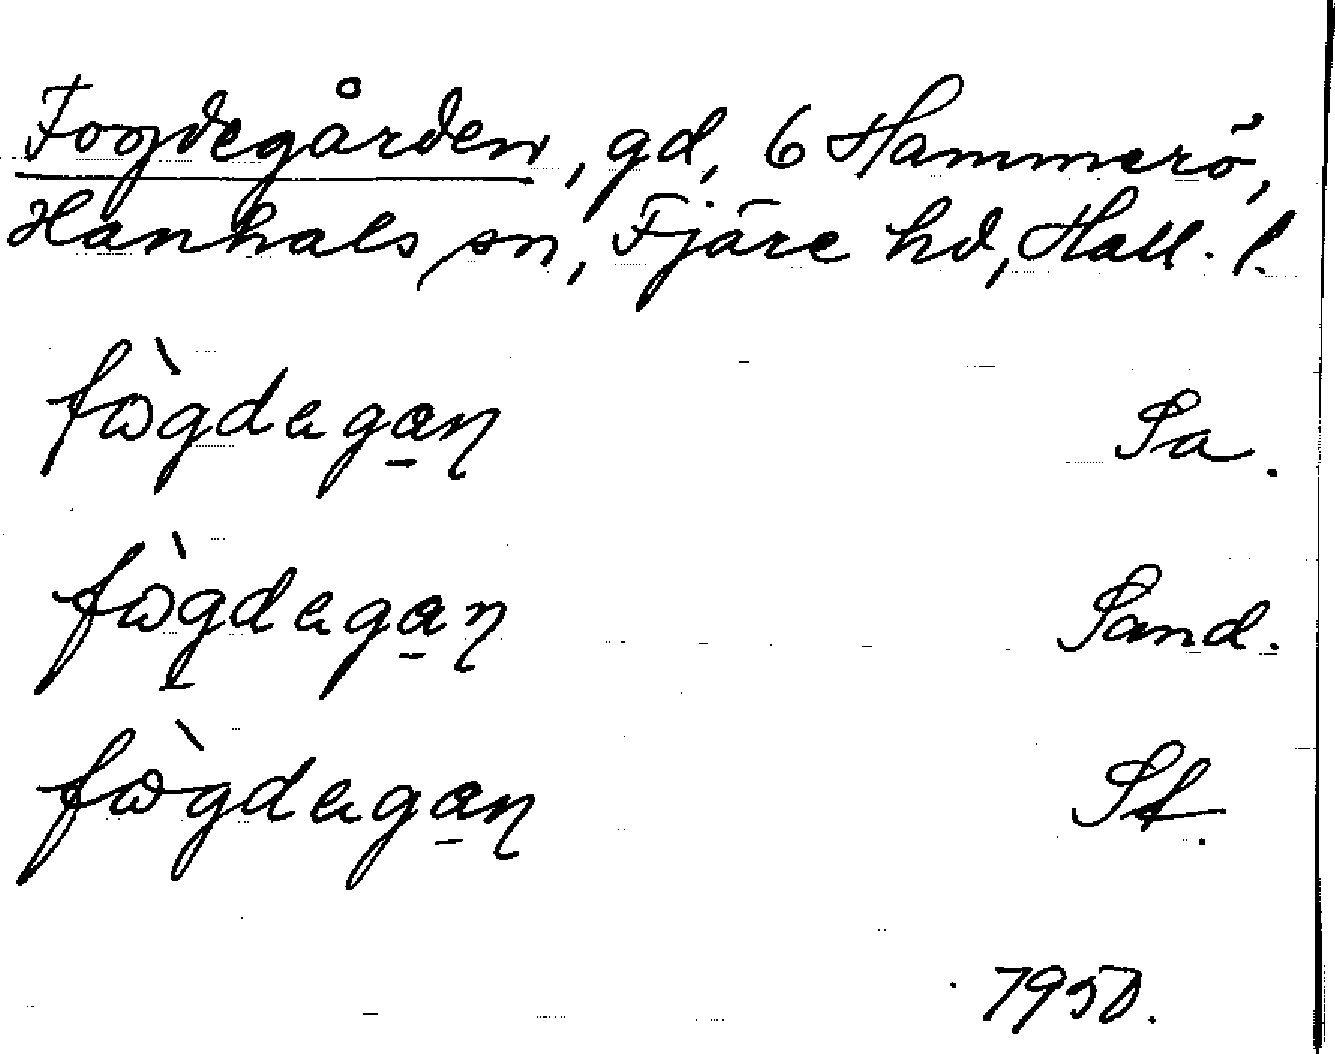 Fogdegården, gd, 6 Hammerö,
Hanhals sn, Fjäre hd, Hall. l.
fὼgdaga̠ɳ Sa.
fὼg̠daga̠ɳ Sand.
fὼgdaga̠ɳ St.
1950.